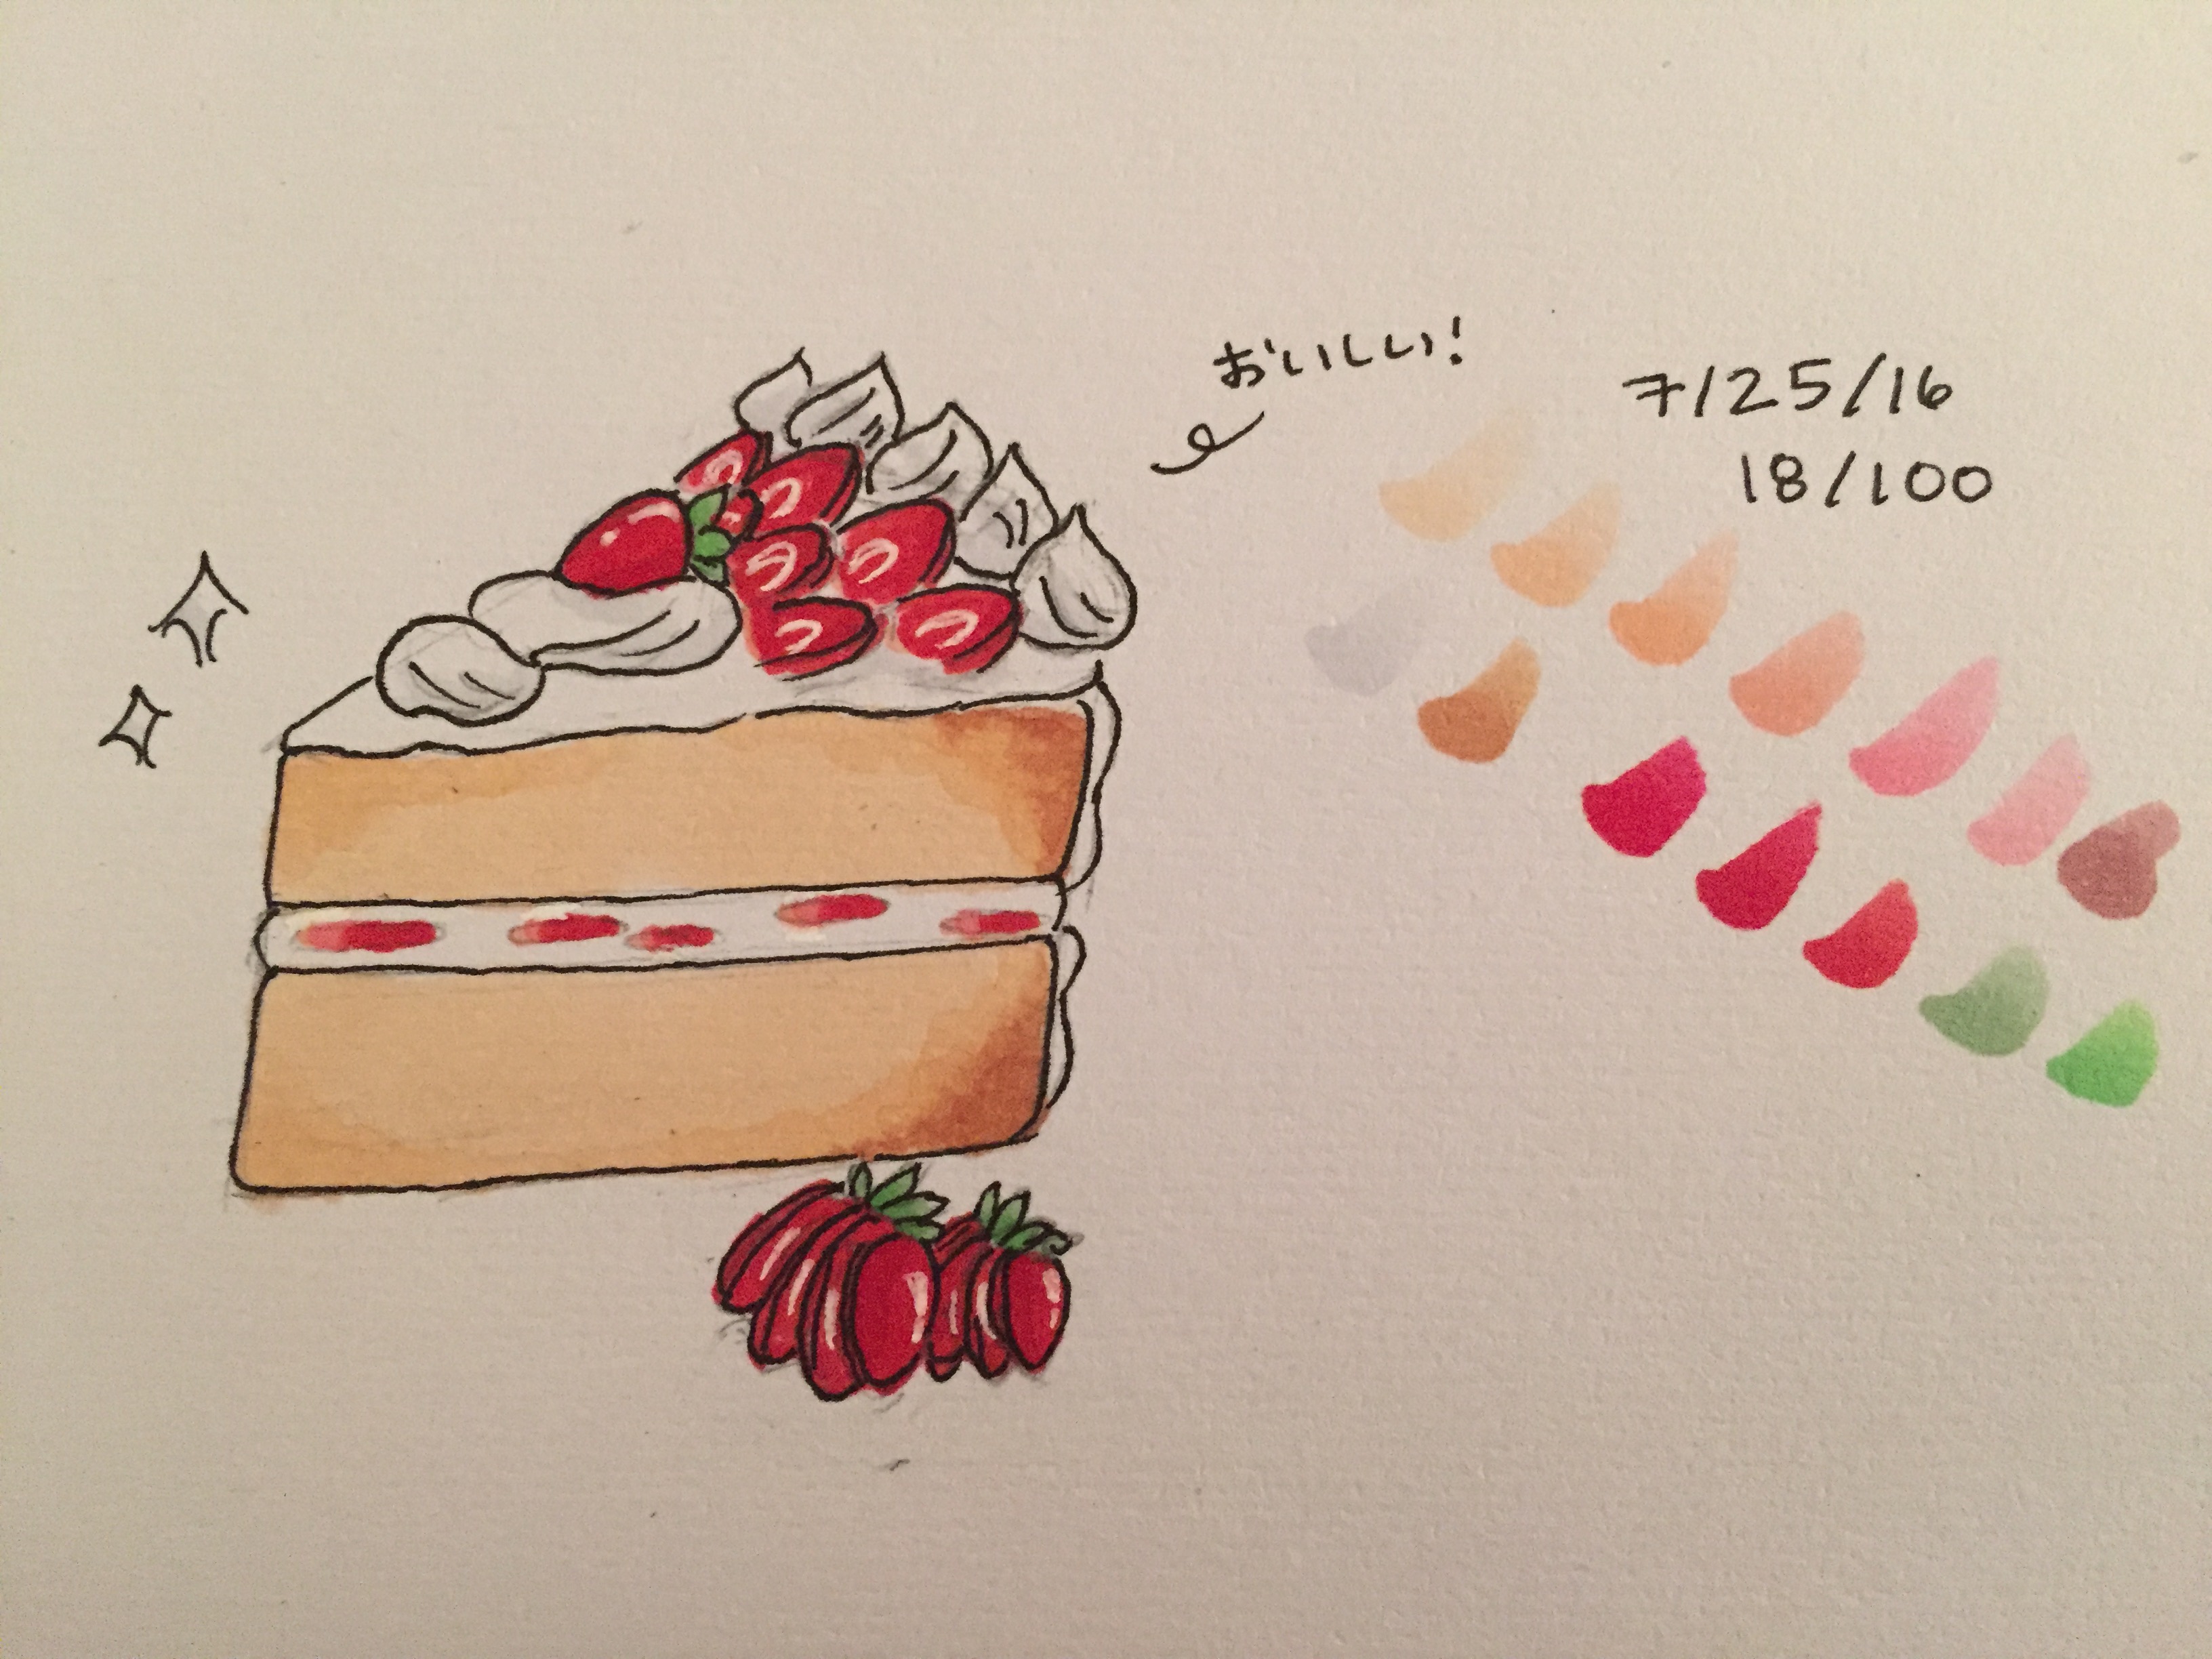 おいしい!
7/25/16
18/100